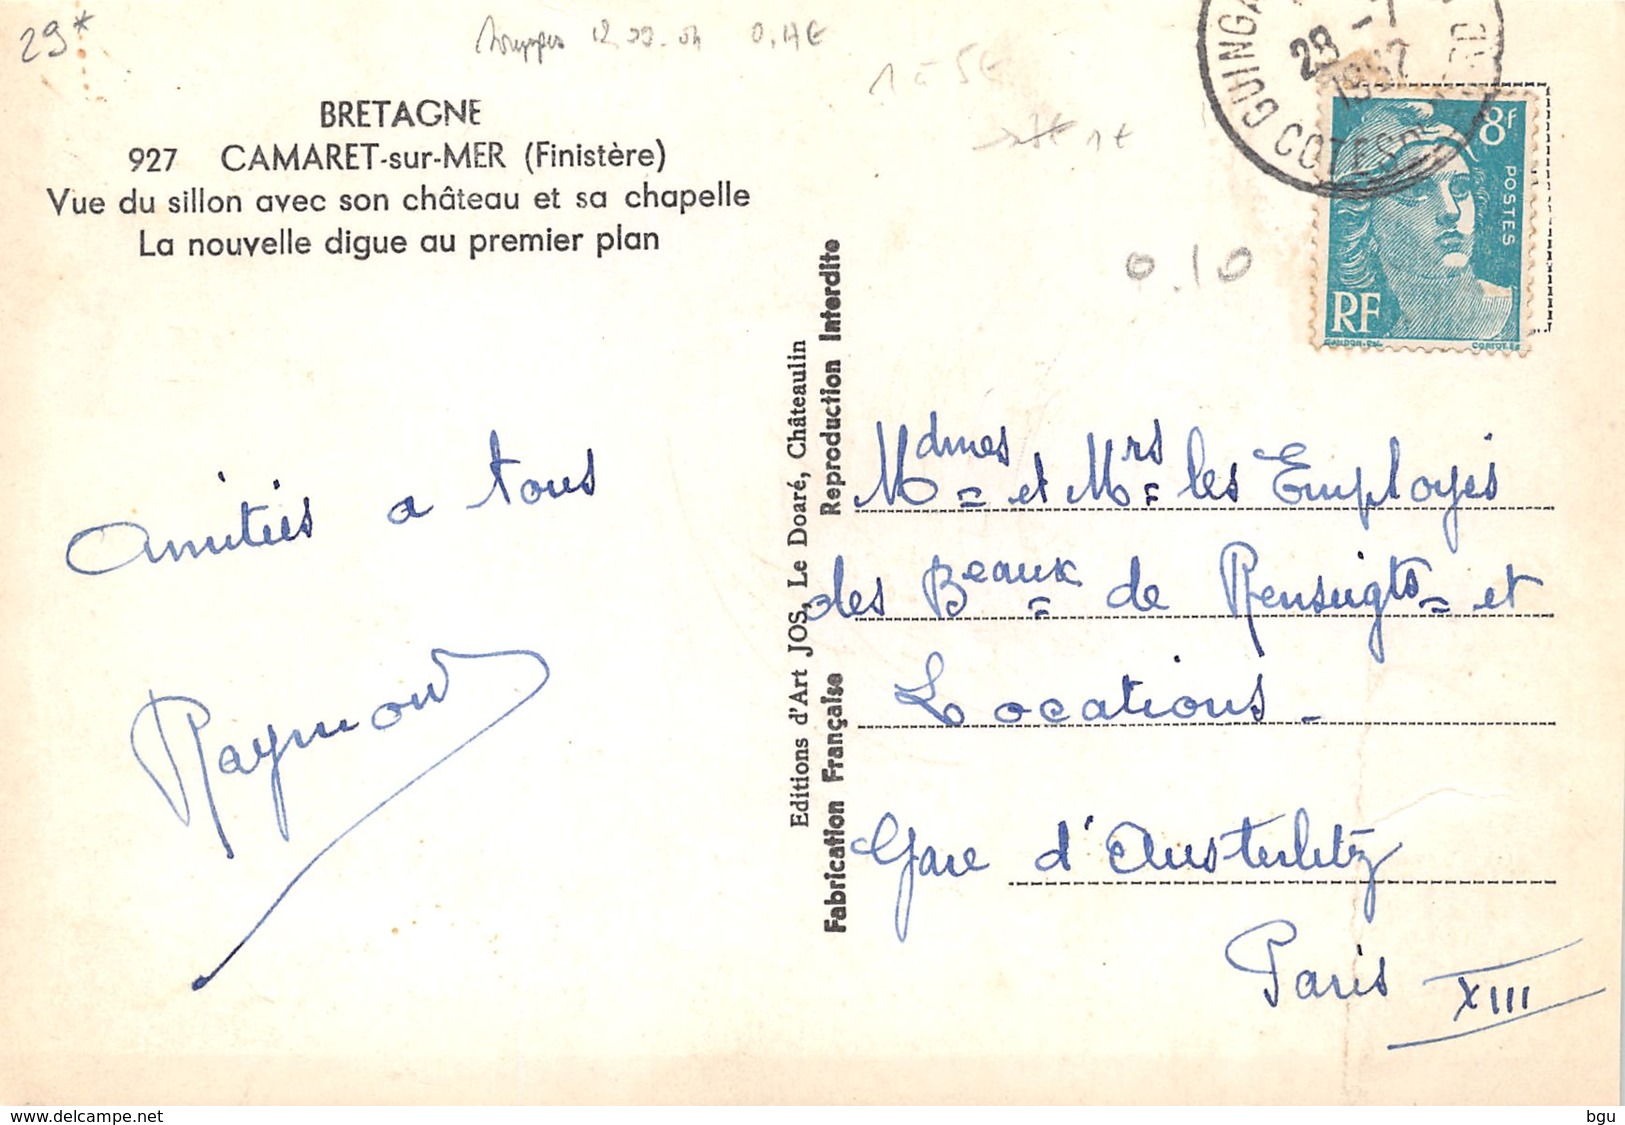 29*
12.99.04 0.14€
1 à 5€
1€
0.10
BRETAGNE
927 CAMARET-sur-MER (Finistère)
Vue du sillon avec son château et sa chapelle
La nouvelle digue au premier plan
GUINGA
28 -7
1952
COTES DU
8f
POSTES
RF
GANDON
CORTOT
Editions d'Art JOS, Le Doaré, Châteaulin
Fabrication Française Reproduction Interdite
Amitiés a tous
Raymond
Mdmes et Mrs les Employés
des Beaux de Renseigts et
Locations
Gare d'Austerlitz
Paris XIII
delcampe.net
bgu